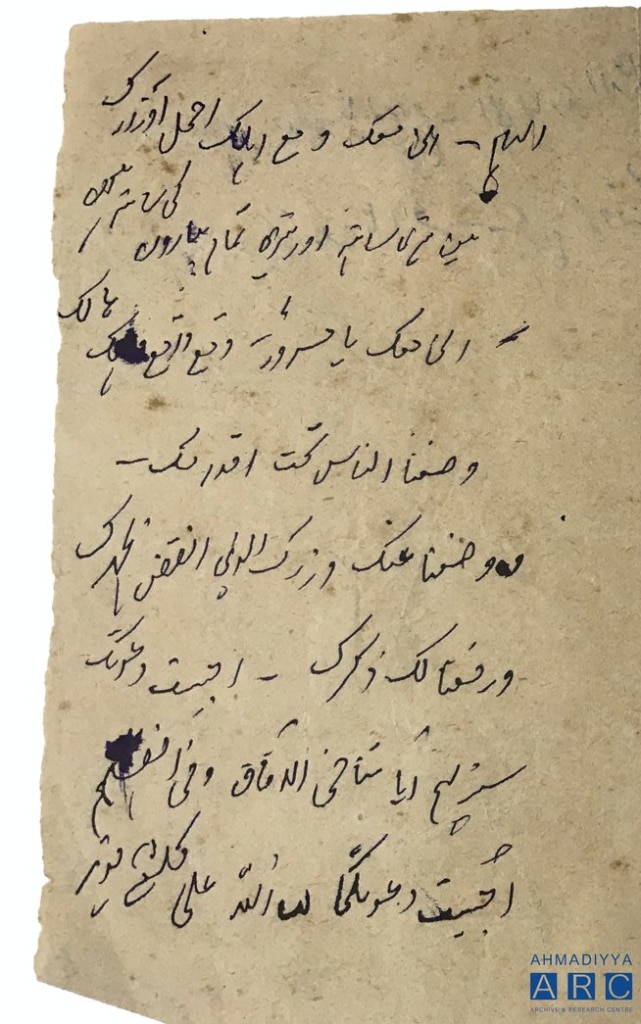 الہام – انی معک و مع اہلک احمل اوزارک
میں تیرے ساتھ اور تیرے تمام پیاروں کے ساتھ ہوں
انی معک یا مسرور – وقع واقع وہلک ہالک
وضعنا الناس تحت اقدامک –
ووضعنا عنک وزرک الذی انقض ظہرک
ورفعنا لک ذکرک – اجیبت دعوتک
سنریہم آیاتنا فی الآفاق وفی انفسہم
اُجیبت دعوتکما ان اللہ علی کل شیء قدیر
AHMADIYYA
ARC
ARCHIVE & RESEARCH CENTRE